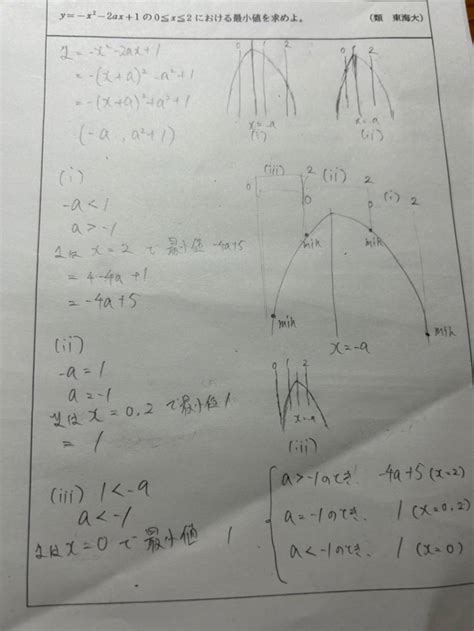 y=−x²−2ax+1の0≦x≦2における最小値を求めよ。 (類 東海大)
y=-x²-2ax+1
=-(x+a)²-a²+1
=-(x+a)²+a²+1
(-a, a²+1)
0 1 2
x=-a
(i)
0 1 2
x=-a
(ii)
(i)
-a<1
a>-1
yは x=2 で 最小値 -4a+5
=4-4a+1
=-4a+5
(iii) 2 (ii) 2 (i) 2
0 0 0
min min
min min
x=-a
(ii)
-a=1
a=-1
yは x=0,2で最小値 1
=1
0 1 2
x=-a
(iii)
(iii) 1<-a
a<-1
yは x=0 で 最小値 1
a>-1のとき. -4a+5(x=2)
a=-1のとき. 1(x=0,2)
a<-1のとき. 1(x=0)